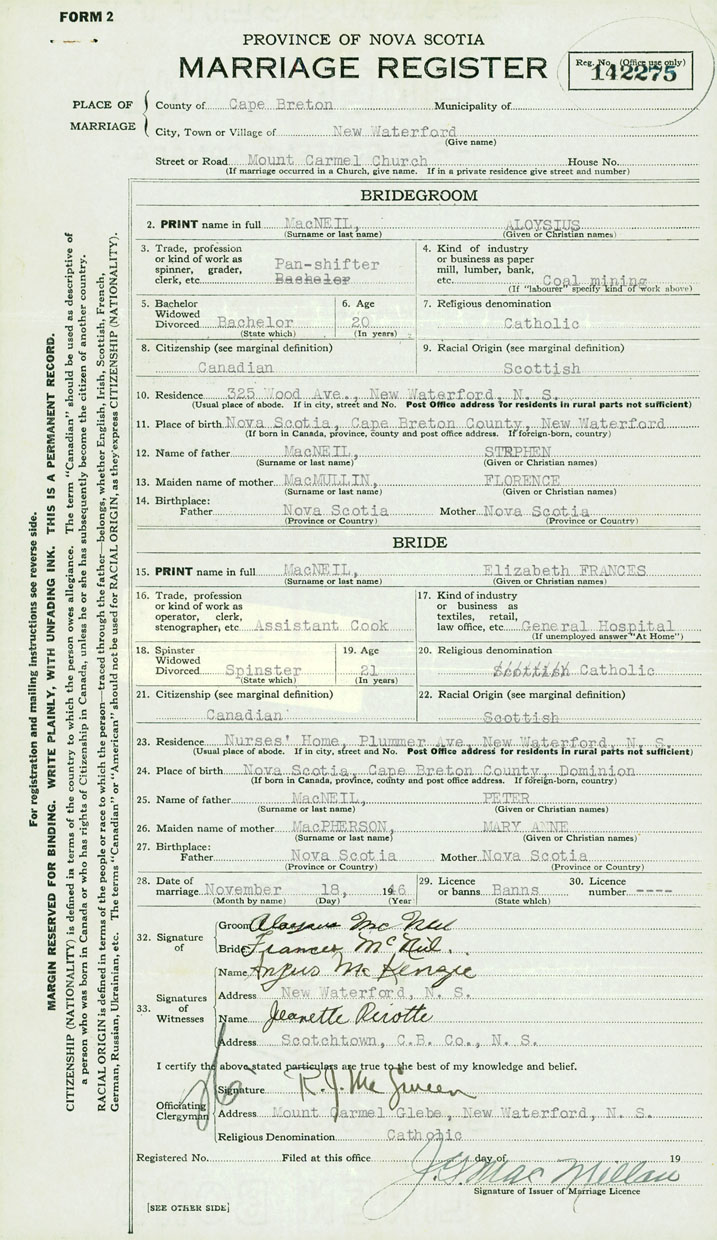 FORM 2
PROVINCE OF NOVA SCOTIA
MARRIAGE REGISTER
Reg. No. (Office use only)
142275
PLACE OF MARRIAGE
County of Cape Breton Municipality of
City, Town or Village of New Waterford
(Give name)
Street or Road Mount Carmel Church House No.
(If marriage occurred in a Church, give name. If in a private residence give street and number)
BRIDEGROOM
2. PRINT name in full MacNEIL, ALOYSIUS
(Surname or last name) (Given or Christian names)
3. Trade, profession or kind of work as spinner, grader, clerk, etc. Pan-shifter Bachelor
4. Kind of industry or business as paper mill, lumber, bank, etc. Coal mining
(If "labourer" specify kind of work above)
5. Bachelor Widowed Divorced Bachelor
(State which)
6. Age 20
(In years)
7. Religious denomination
Catholic
8. Citizenship (see marginal definition)
Canadian
9. Racial Origin (see marginal definition)
Scottish
10. Residence 325 Wood Ave., New Waterford, N. S.
(Usual place of abode. If in city, street and No. Post Office address for residents in rural parts not sufficient)
11. Place of birth Nova Scotia, Cape Breton County, New Waterford
(If born in Canada, province, county and post office address. If foreign-born, country)
12. Name of father MacNEIL, STEPHEN
(Surname or last name) (Given or Christian names)
13. Maiden name of mother MacMULLIN, FLORENCE
(Surname or last name) (Given or Christian names)
14. Birthplace:
Father Nova Scotia Mother Nova Scotia
(Province or Country) (Province or Country)
BRIDE
15. PRINT name in full MacNEIL, Elizabeth FRANCES
(Surname or last name) (Given or Christian names)
16. Trade, profession or kind of work as operator, clerk, stenographer, etc. Assistant Cook
17. Kind of industry or business as textiles, retail, law office, etc. General Hospital
(If unemployed answer "At Home")
18. Spinster Widowed Divorced Spinster
(State which)
19. Age 21
(In years)
20. Religious denomination
Scottish Catholic
21. Citizenship (see marginal definition)
Canadian
22. Racial Origin (see marginal definition)
Scottish
23. Residence Nurses' Home, Plummer Ave, New Waterford, N. S.
(Usual place of abode. If in city, street and No. Post Office address for residents in rural parts not sufficient)
24. Place of birth Nova Scotia, Cape Breton County, Dominion
(If born in Canada, province, county and post office address. If foreign-born, country)
25. Name of father MacNEIL, PETER
(Surname or last name) (Given or Christian names)
26. Maiden name of mother MacPHERSON, MARY ANNE
(Surname or last name) (Given or Christian names)
27. Birthplace:
Father Nova Scotia Mother Nova Scotia
(Province or Country) (Province or Country)
28. Date of marriage November 18, 1946
(Month by name) (Day) (Year)
29. Licence or banns Banns
(State which)
30. Licence number ----
32. Signature of
Groom Aloysius McNeil
Bride Frances McNeil.
33. Signatures of Witnesses
Name Angus McKenzie
Address New Waterford, N. S.
Name Jeanette
Address Scotchtown, C.B. Co., N. S.
I certify the above stated particulars are true to the best of my knowledge and belief.
Officiating Clergyman
Signature R. J. Mc
Address Mount Carmel Glebe, New Waterford, N. S.
Religious Denomination Catholic
Registered No. Filed at this office day of 19
J. G. MacMillan
Signature of Issuer of Marriage Licence
[SEE OTHER SIDE]
For registration and mailing instructions see reverse side.
MARGIN RESERVED FOR BINDING. WRITE PLAINLY, WITH UNFADING INK. THIS IS A PERMANENT RECORD.
CITIZENSHIP (NATIONALITY) is defined in terms of the country to which the person owes allegiance. The term "Canadian" should be used as descriptive of
a person who was born in Canada or who has rights of Citizenship in Canada, unless he or she has subsequently become the citizen of another country.
RACIAL ORIGIN is defined in terms of the people or race to which the person—traced through the father—belongs, whether English, Irish, Scottish, French,
German, Russian, Ukrainian, etc. The terms "Canadian" or "American" should not be used for RACIAL ORIGIN, as they express CITIZENSHIP (NATIONALITY).